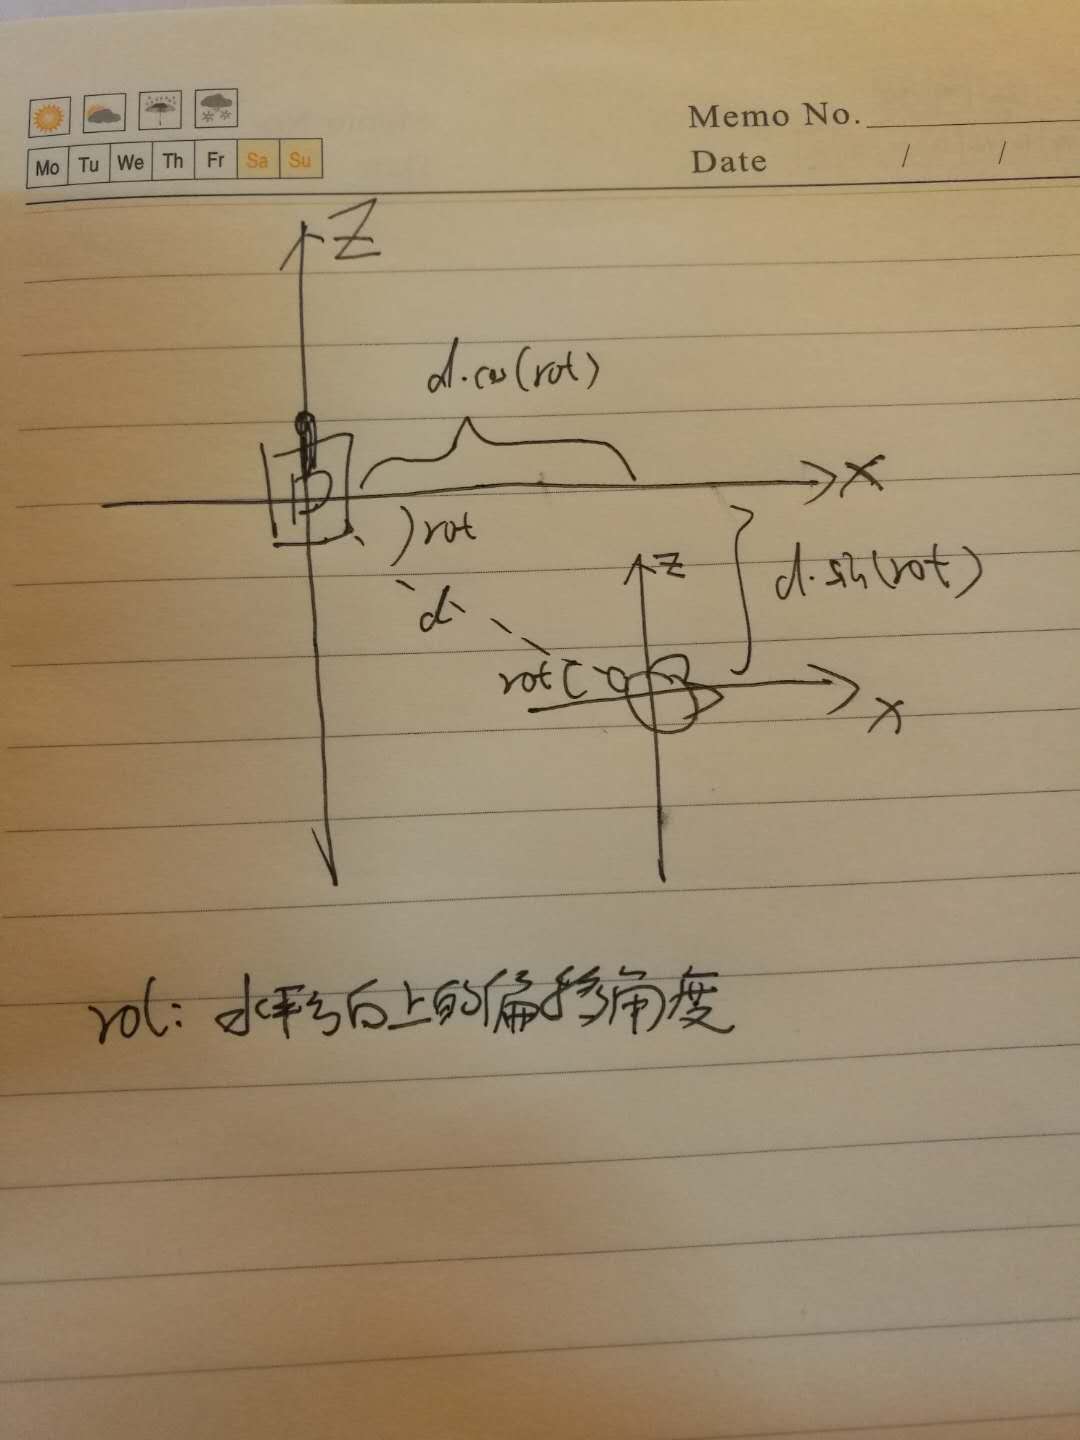 Memo No.
Mo Tu We Th Fr Sa Su
Date / /
Z
d·cos(rot)
X
)rot
z
d·sin(rot)
d
rot
x
rot: 水平方向上的偏移角度